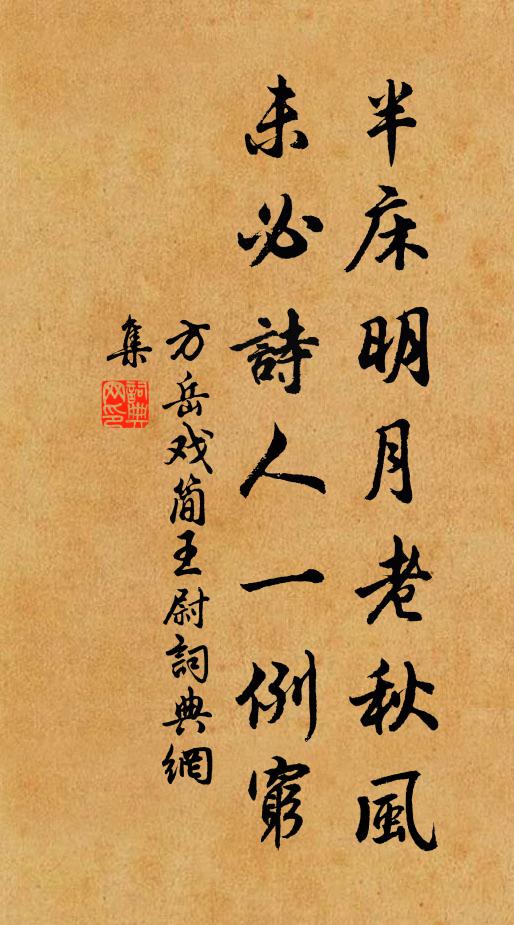 半床明月老秋風
未必詩人一例窮
方岳戏簡王尉詞典網
集
詞典
网印